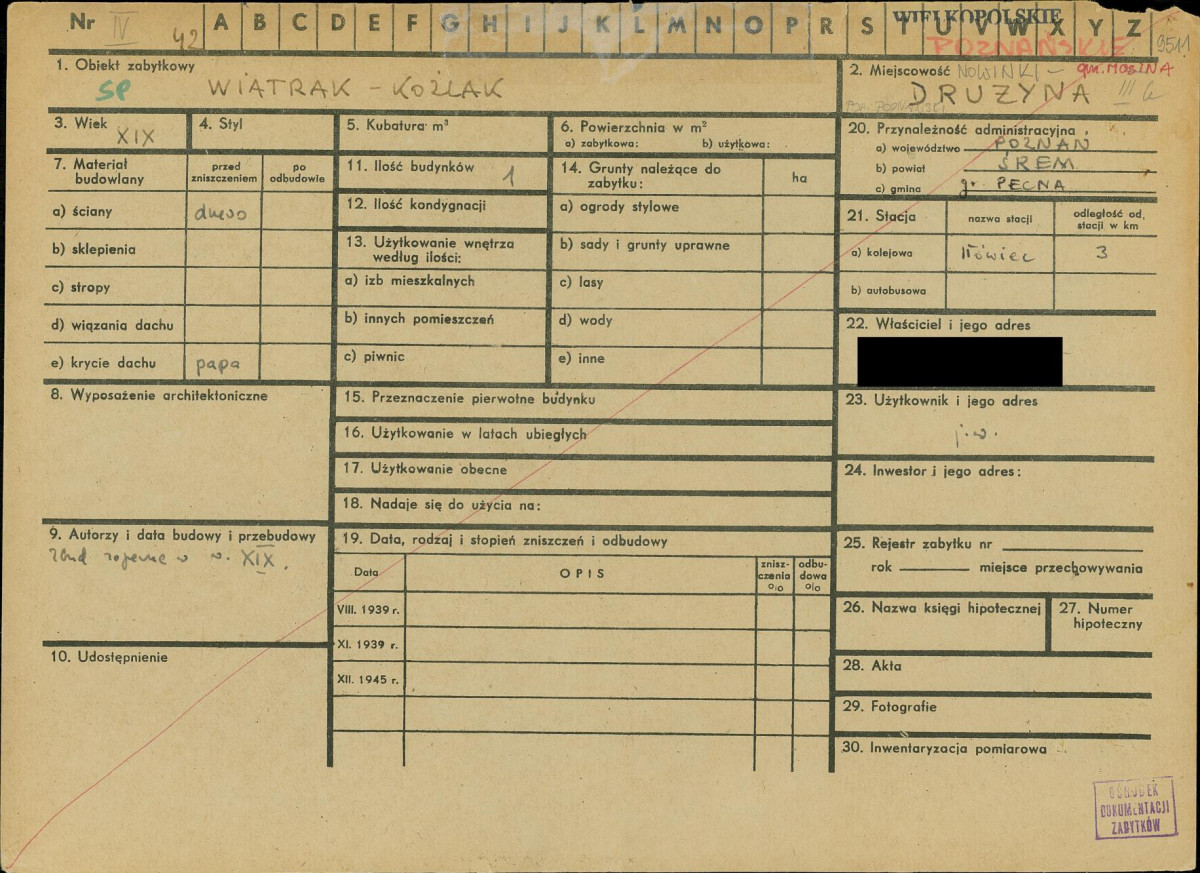 Nr IV 42 A B C D E F G H I J K L M N O P R S T U V W X Y Z
WIELKOPOLSKIE
POZNAŃSKIE 9511
1. Obiekt zabytkowy
SP WIATRAK - KOŹLAK
2. Miejscowość NOWINKI - gm. MOSINA
DRUŻYNA III
3. Wiek XIX
4. Styl
5. Kubatura m³
6. Powierzchnia w m²
a) zabytkowa: b) użytkowa:
20. Przynależność administracyjna
a) województwo POZNAŃ
b) powiat ŚREM
c) gmina gr. PECNA
7. Materiał budowlany
przed zniszczeniem
po odbudowie
a) ściany drewo
b) sklepienia
c) stropy
d) wiązania dachu
e) krycie dachu papa
11. Ilość budynków 1
12. Ilość kondygnacji
13. Użytkowanie wnętrza
według ilości:
a) izb mieszkalnych
b) innych pomieszczeń
c) piwnic
14. Grunty należące do
zabytku: ha
a) ogrody stylowe
b) sady i grunty uprawne
c) lasy
d) wody
e) inne
21. Stacja
nazwa stacji
odległość od. stacji w km
a) kolejowa Iłówiec 3
b) autobusowa
22. Właściciel i jego adres
8. Wyposażenie architektoniczne
15. Przeznaczenie pierwotne budynku
16. Użytkowanie w latach ubiegłych
17. Użytkowanie obecne
18. Nadaje się do użycia na:
23. Użytkownik i jego adres
j.w.
24. Inwestor i jego adres:
9. Autorzy i data budowy i przebudowy
w. XIX.
19. Data, rodzaj i stopień zniszczeń i odbudowy
Data
OPIS
znisz-
czenia
o/o
odbu-
dowa
o/o
VIII. 1939 r.
XI. 1939 r.
XII. 1945 r.
25. Rejestr zabytku nr
rok miejsce przechowywania
26. Nazwa księgi hipotecznej
27. Numer
hipoteczny
10. Udostępnienie
28. Akta
29. Fotografie
30. Inwentaryzacja pomiarowa
OŚRODEK
DOKUMENTACJI
ZABYTKÓW